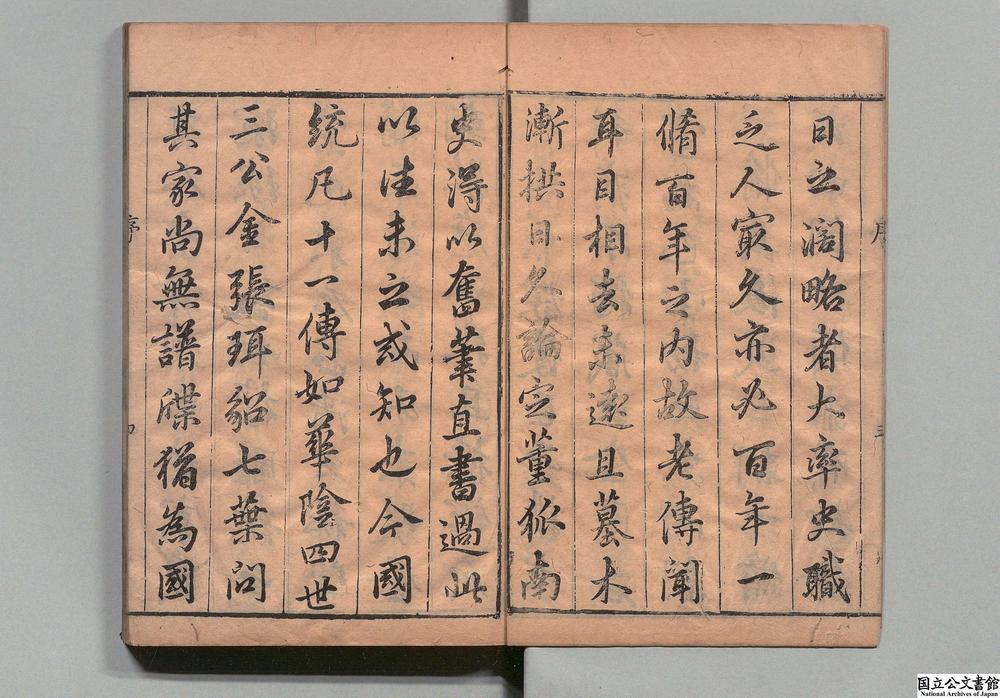 日之闊略者大率史職
乏人寂久亦必百年一
脩百年之内故老傳聞
耳目相去未遠且墓木
漸拱日久論定董狐南
史得以奮筆直書過此
以往未之或知也今國
統凡十一傳如華陰四世
三公金張珥貂七葉問
其家尚無譜牒猶為國
序
三
序
四
国立公文書館
National Archives of Japan